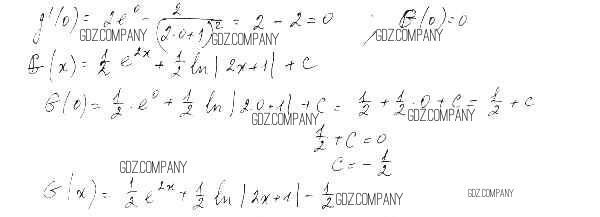 g'(0) = 2e⁰ - 2/(2·0+1)² = 2 - 2 = 0 ; G(0)=0
GDZ.COMPANY GDZ.COMPANY GDZ.COMPANY
G(x) = 1/2 e^2x + 1/2 ln|2x+1| + C
G(0) = 1/2 · e⁰ + 1/2 ln|2·0+1| + C = 1/2 + 1/2 · 0 + C = 1/2 + C
GDZ.COMPANY GDZ.COMPANY
1/2 + C = 0
C = - 1/2
GDZ.COMPANY
G(x) = 1/2 e^2x + 1/2 ln|2x+1| - 1/2
GDZ.COMPANY GDZ.COMPANY